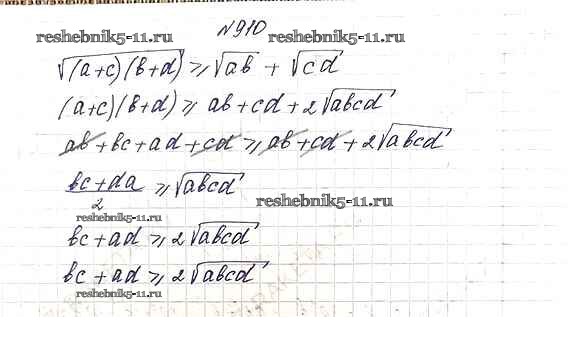 №910
reshebnik5-11.ru reshebnik5-11.ru
√(a+c)(b+d) ≥ √ab + √cd
(a+c)(b+d) ≥ ab + cd + 2√abcd
ab + bc + ad + cd ≥ ab + cd + 2√abcd
(bc + da)/2 ≥ √abcd
reshebnik5-11.ru
reshebnik5-11.ru
bc + ad ≥ 2√abcd
bc + ad ≥ 2√abcd
reshebnik5-11.ru